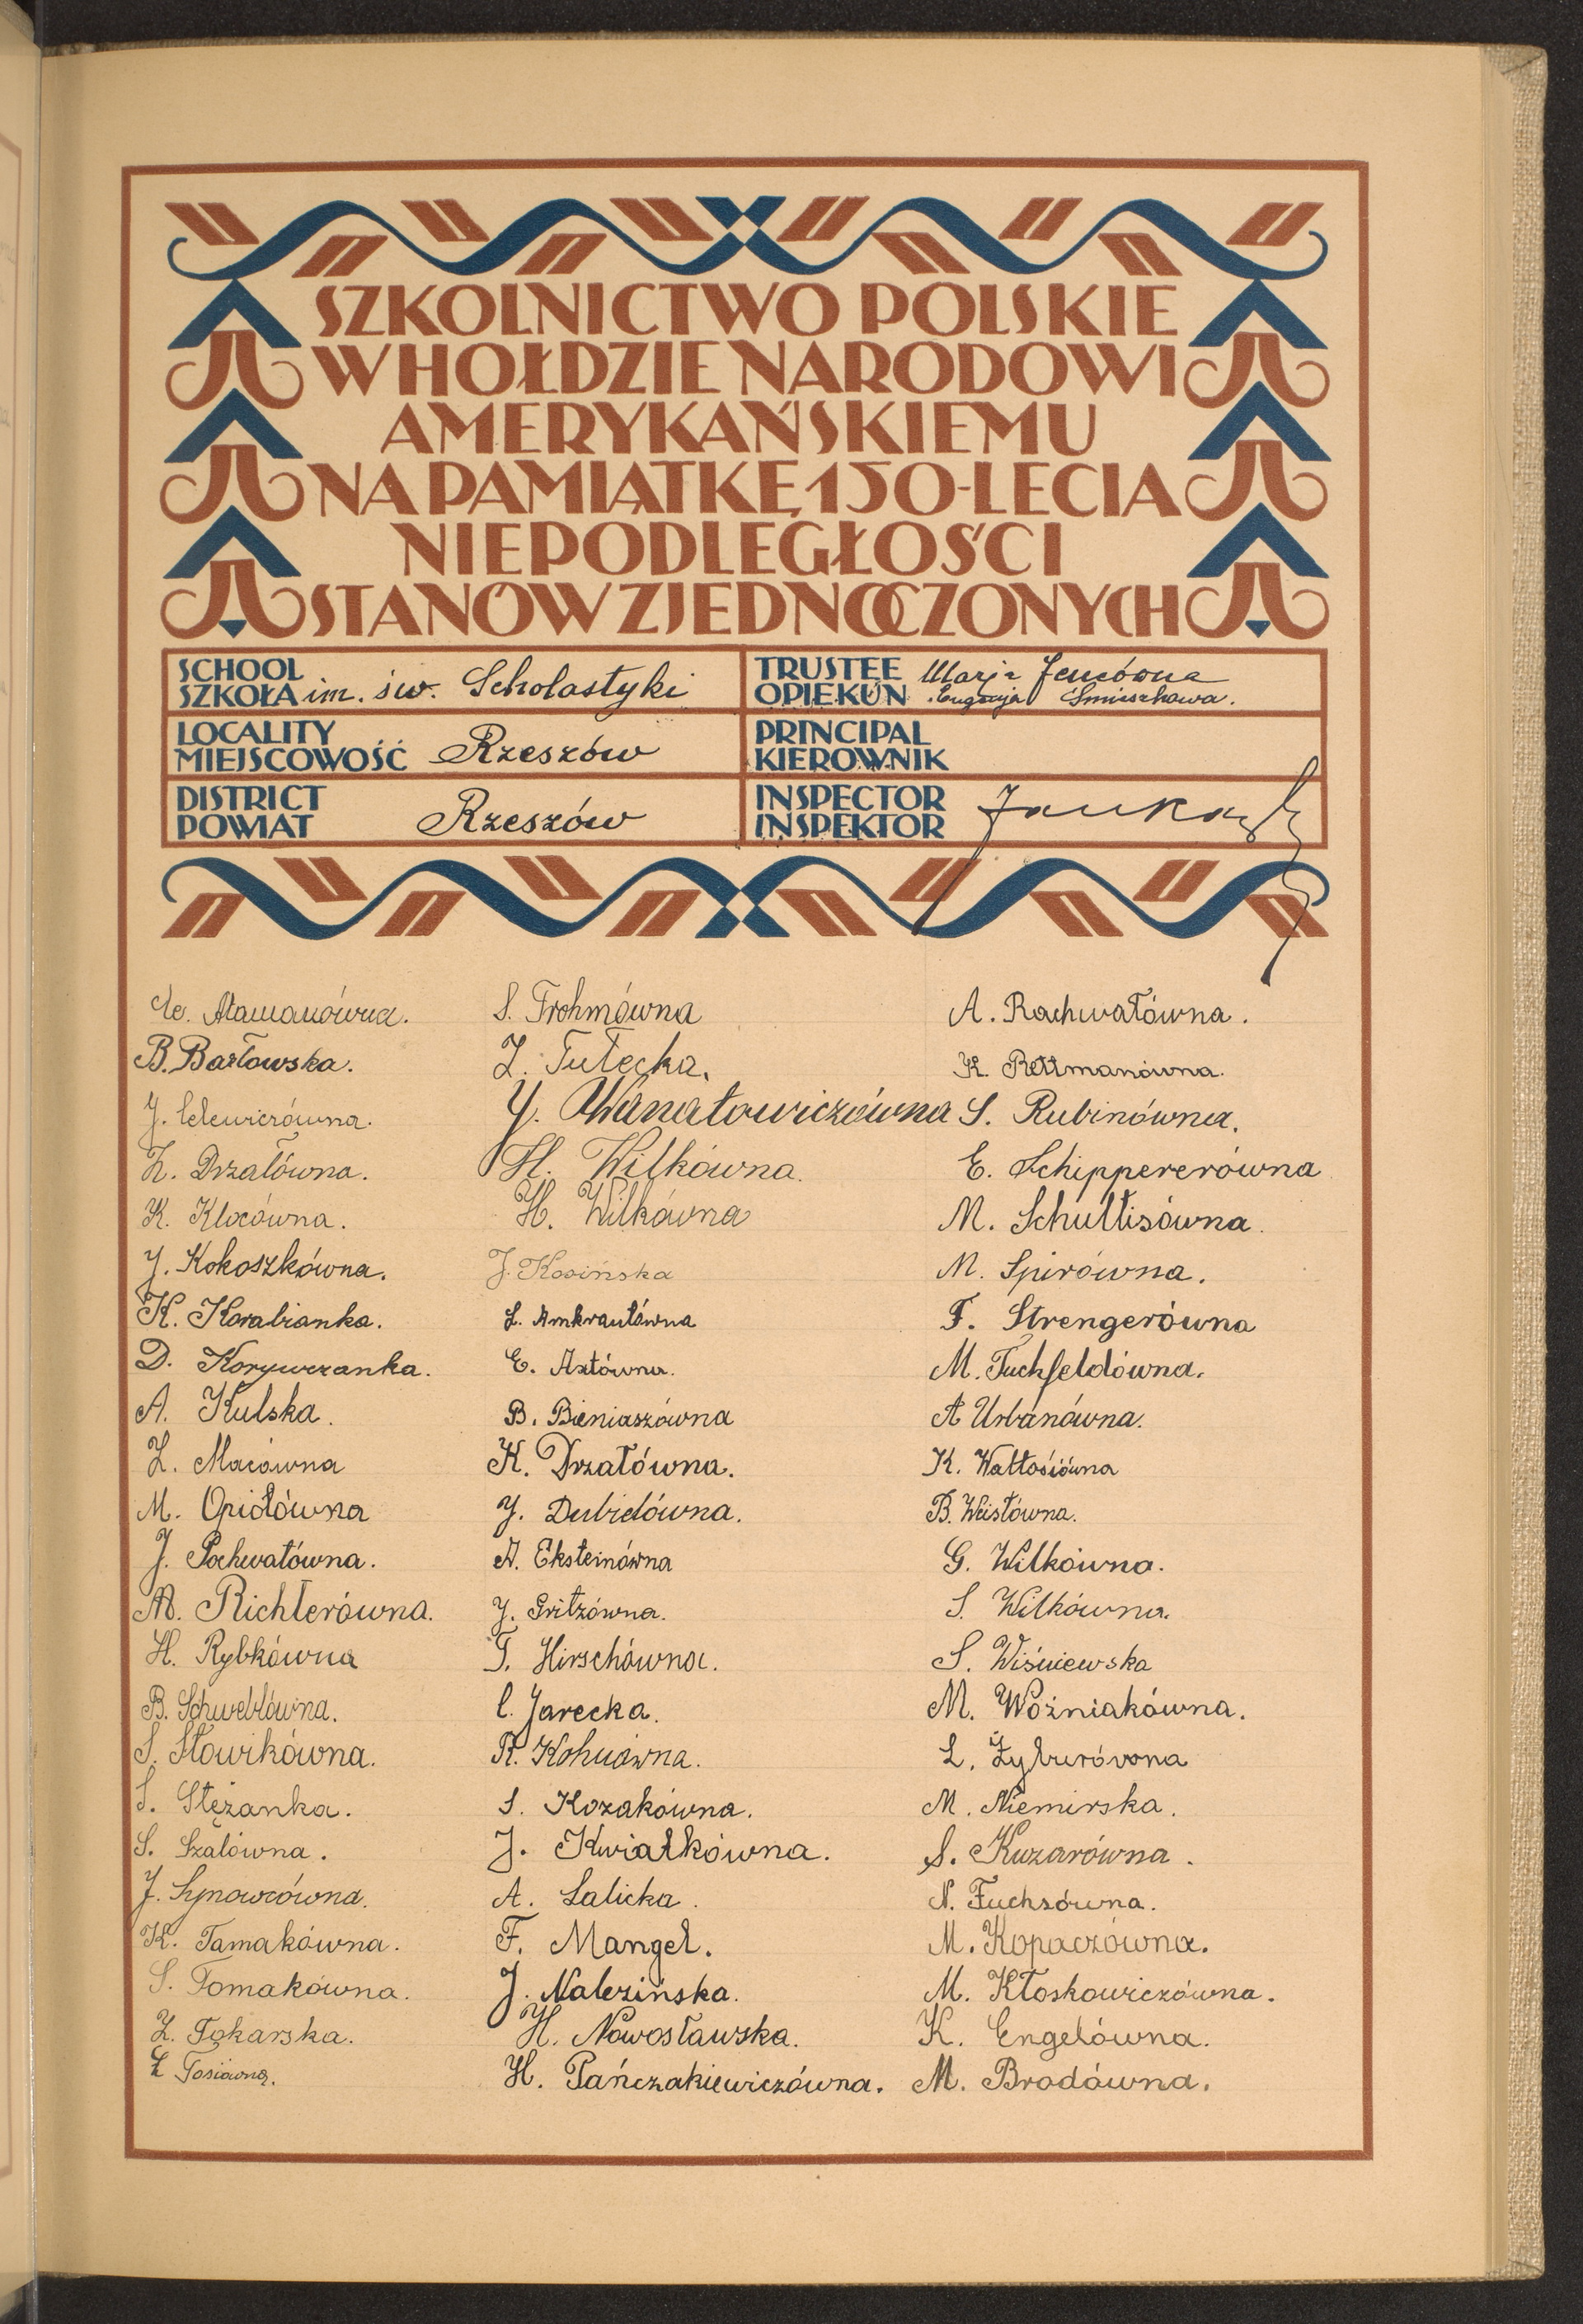 SZKOLNICTWO POLSKIE
W HOŁDZIE NARODOWI
AMERYKAŃSKIEMU
NA PAMIĄTKĘ 150-LECIA
NIEPODLEGŁOŚCI
STANÓW ZJEDNOCZONYCH
SCHOOL
SZKOŁA im. św. Scholastyki
TRUSTEE Marja
OPIEKUN Eugenja
LOCALITY
MIEJSCOWOŚĆ Rzeszów
PRINCIPAL
KIEROWNIK
DISTRICT
POWIAT Rzeszów
INSPECTOR
INSPEKTOR
Atamanówna.
B. Bartowska.
J.
Z. Drzałówna.
K. Klocówna.
J. Kokoszkówna.
K. Korabianka.
D. Korywczanka.
A. Kulska.
Z. Macówna
M. Opiołówna
J. Pochwatówna.
M. Richterówna.
H. Rybkówna
B. Schweblówna.
S. Słowikówna.
S. Stężanka.
S. Szalówna.
J. Synowcówna.
K. Tamakówna.
S. Tomakówna.
Z. Tokarska.
Z. Tosiówna.
S. Frohmówna
Z. Tułecka.
J. Wanatowiczówna
H. Wilkówna.
H. Wilkówna
J. Kosińska
L. Amkrautówna
E. Axtówna.
B. Bieniaszówna
K. Drzałówna.
J. Dubielówna.
A. Eksteinówna
J. Gritzówna.
T. Hirschówna.
C. Jarecka.
R. Kohnówna.
S. Kozakówna.
J. Kwiatkówna.
A. Lalicka.
F. Mangel.
J. Nalezińska.
H. Nowosławska.
H. Pańczakiewiczówna.
A. Rachwałówna.
K. Rettmanówna.
S. Rubinówna.
E. Schippererówna
M. Schultisówna.
M. Spirówna.
F. Strengerówna
M. Tuchfeldówna.
A Urbanówna.
K. Wattosiówna
B. Weistówna.
G. Wilkówna.
S. Wilkówna.
S. Wiśniewska
M. Woźniakówna.
L. Żyburówna
M. Niemirska.
S. Kuzarówna.
N. Fuchsówna.
M. Kopaczówna.
M. Kłoskowiczówna.
K. Engelówna.
M. Brodówna.